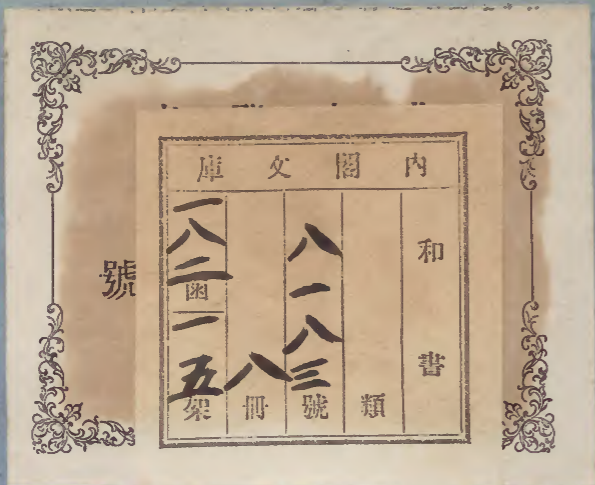 內閣文庫
和書
類
八一八三號
八冊
一八二函
一五架
號